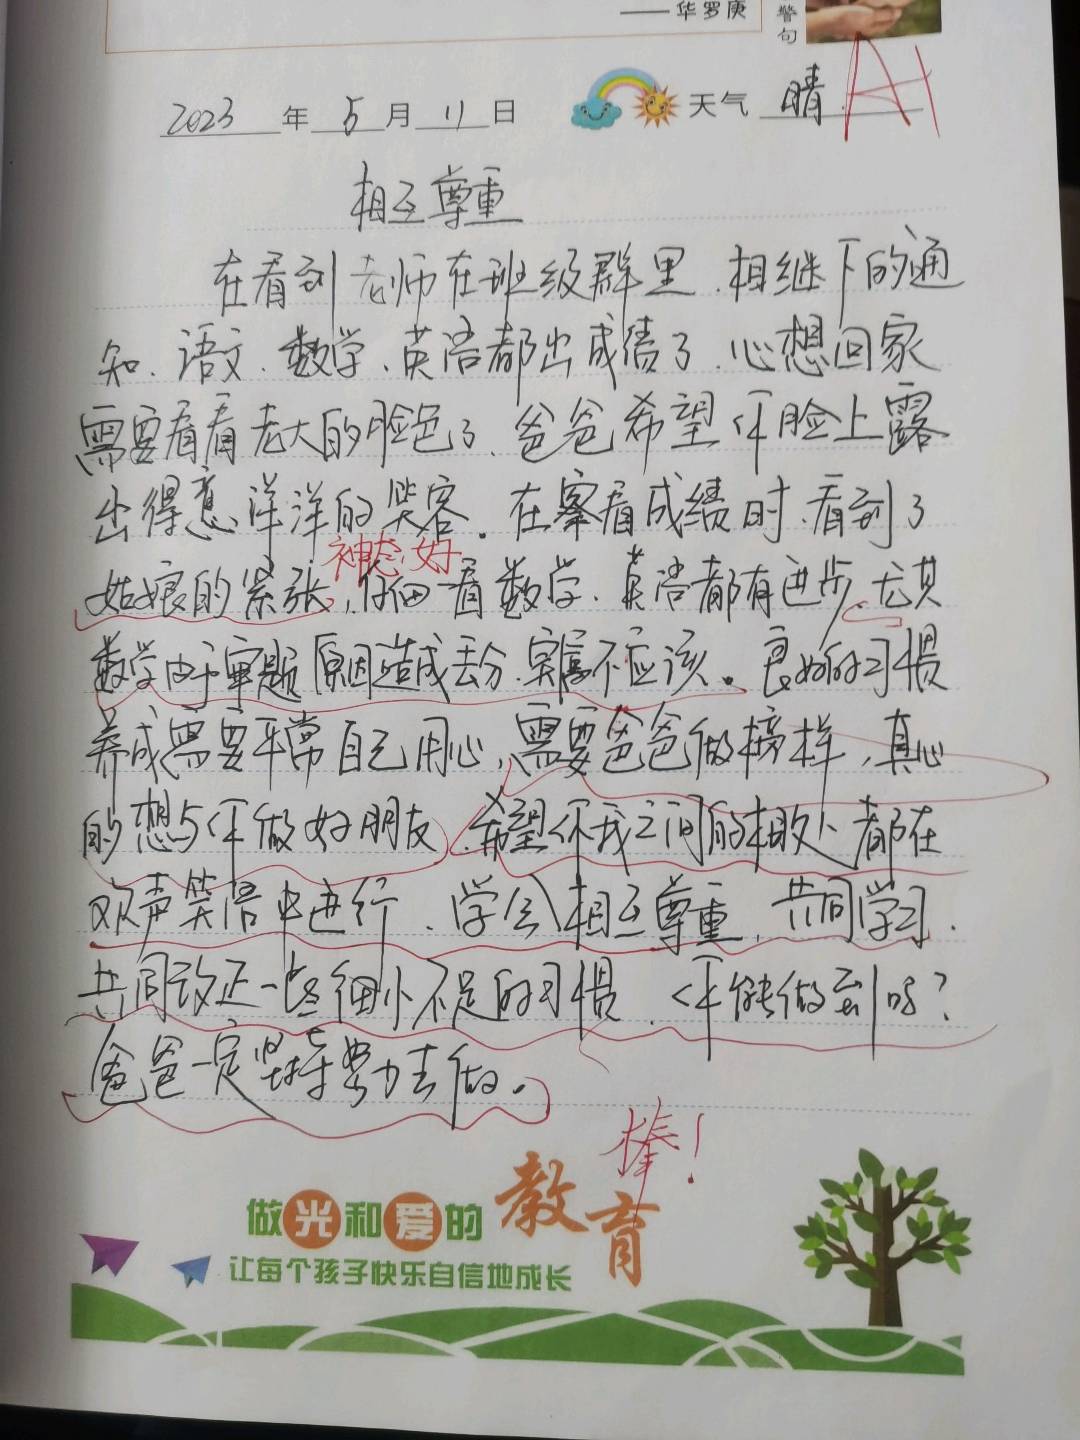 ——华罗庚
警句
A+
2023年5月11日 天气 晴
相互尊重
在看到老师在班级群里、相继下的通
知、语文、数学、英语都出成绩了、心想回家
需要看看老大的脸色了、爸爸希望你脸上露
出得意洋洋的笑容。在察看成绩时、看到了
神态 好
姑娘的紧张,仔细看数学、英语都有进步、尤其
数学由于审题原因造成丢分、实属不应该。良好的习惯
养成需要平常自己用心,需要爸爸做榜样,真心
的想与你做好朋友、希望你我之间的相处、都在
欢声笑语中进行、学会相互尊重,共同学习、
共同改正一些细小不足的习惯、你能做到吗?
爸爸一定坚持努力去做。
棒!
做光和爱的教育
让每个孩子快乐自信地成长